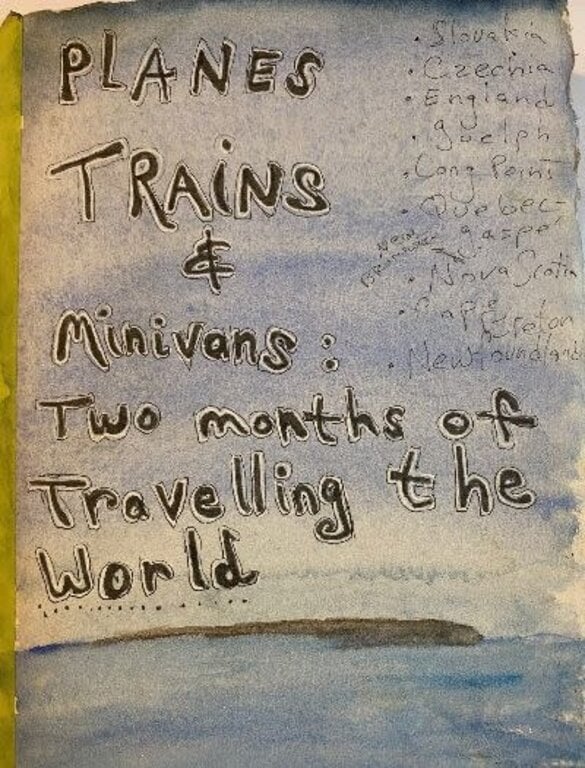 PLANES
TRAINS
&
Minivans:
Two months of
Travelling the
World
· Slovakia
· Czechia
· England
· Guelph
· Long Point
· Quebec-
gaspé
New
Brunswick
· Nova Scotia
· Cape
Breton
· Newfoundland